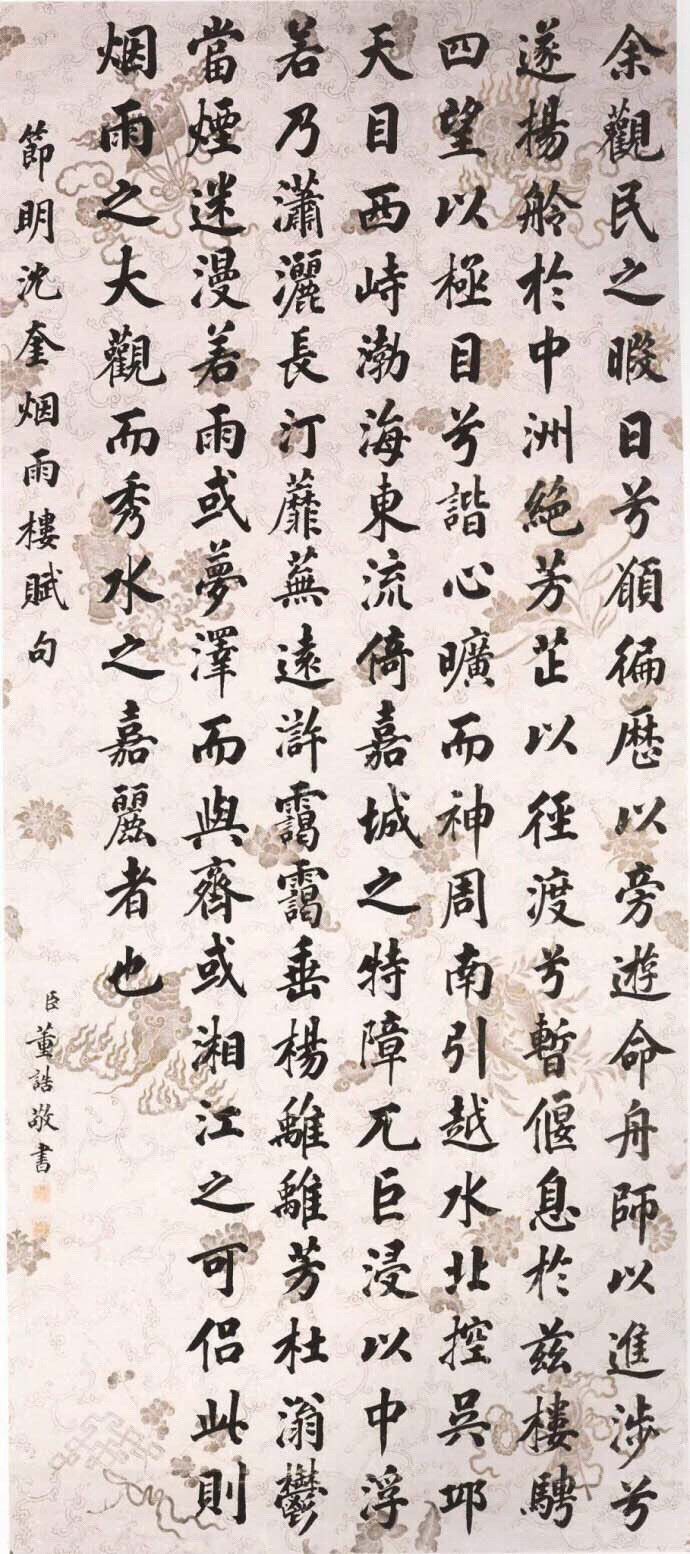 余觀民之暇日兮願徧歷以旁遊命舟師以進渉兮
遂揚舲於中洲絶芳芷以徑渡兮暫偃息於兹樓騁
四望以極目兮諧心曠而神周南引越水北控吳邛
天目西峙渤海東流倚嘉城之特障兀巨浸以中浮
若乃瀟灑長汀蘼蕪遠滸靄靄垂楊離離芳杜滃鬱
當煙迷漫若雨或夢澤而與齊或湘江之可侶此則
烟雨之大觀而秀水之嘉麗者也
節明沈奎烟雨樓賦句
臣董誥敬書